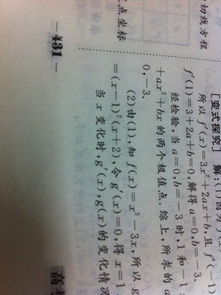 切线方程
点坐标
[变式探究] 解
所以 f′(x)=3x²+2ax+b,且 f′(-1)
f′(1)=3+2a+b=0,解得 a=0,b=-3.
经检验,当 a=0,b=-3 时,1 和 -1
+ax²+bx 的两个极值点.综上,所求的 a
0,-3.
(2)由(1),知 f(x)=x³-3x,所以 g
=(x-1)²(x+2),令 g′(x)=0,得 x=1
当 x 变化时,g′(x),g(x)的变化情况
-431-
高